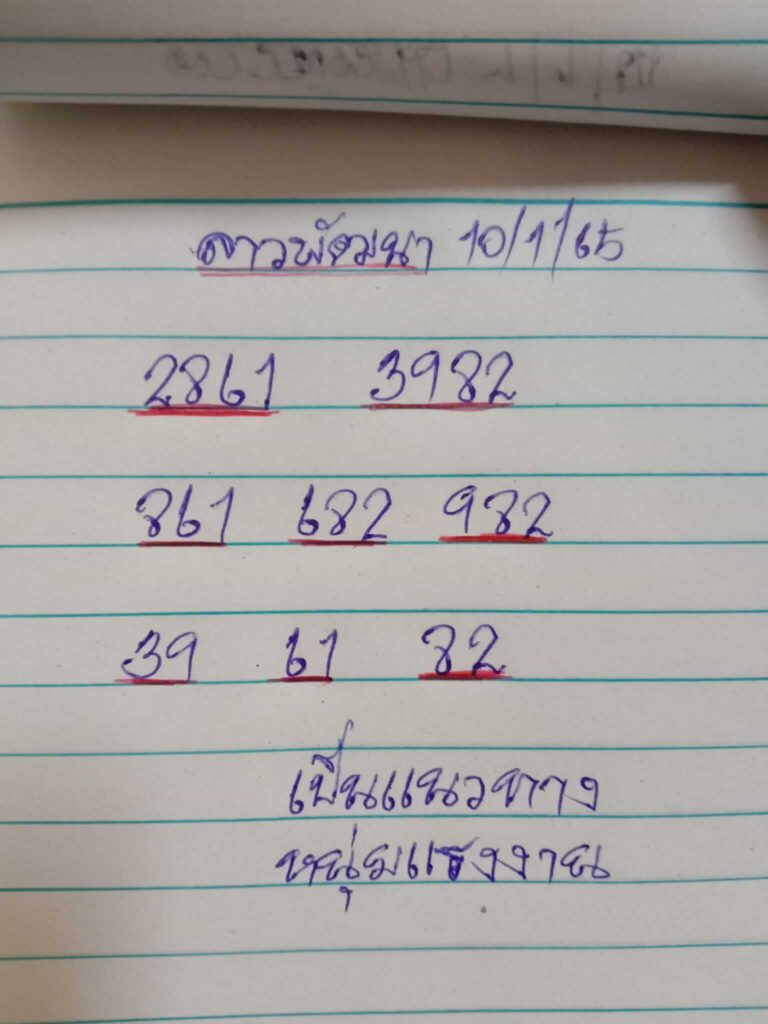 ลาวพัฒนา 10/1/65
2861 3982
861 682 982
39 61 82
เป็นแนวทาง
หนุ่มแรงงาน